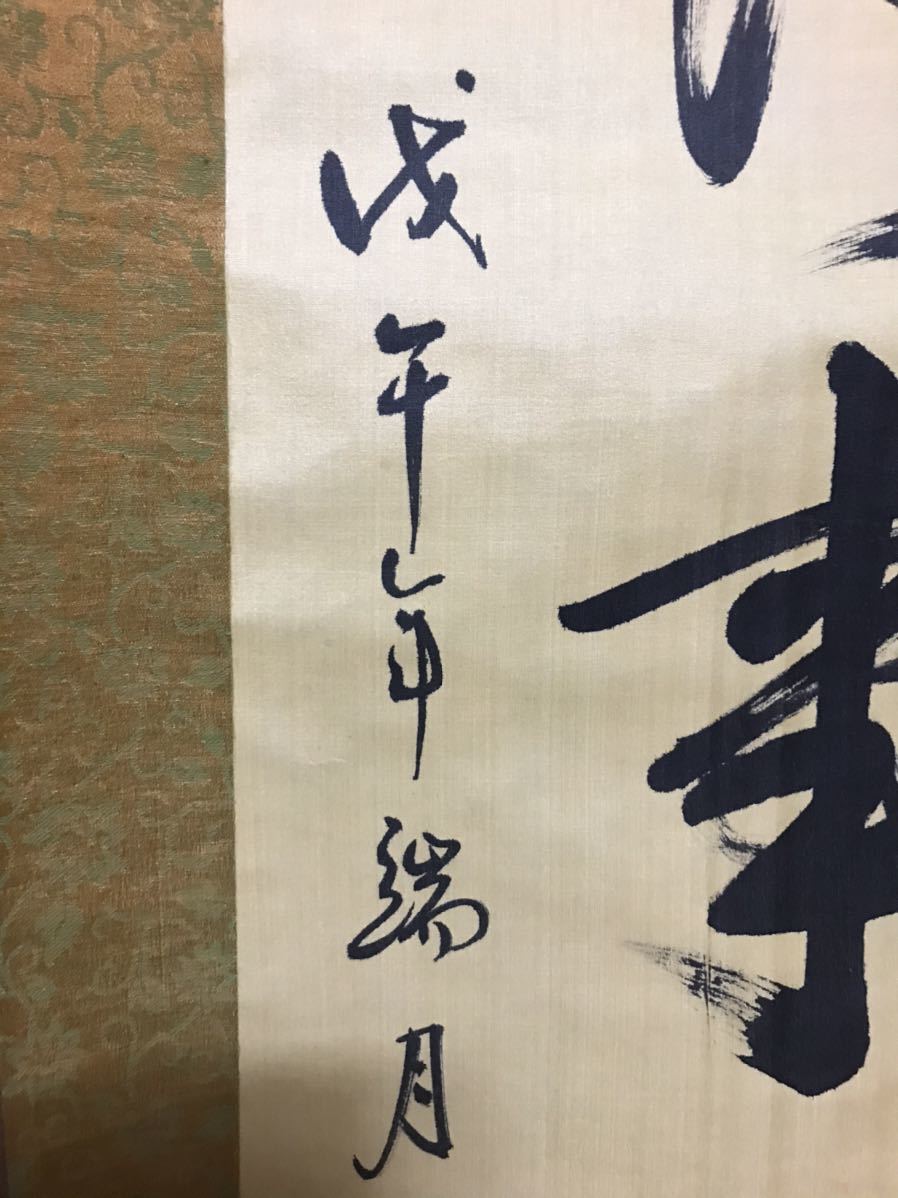 事
戊午年端月